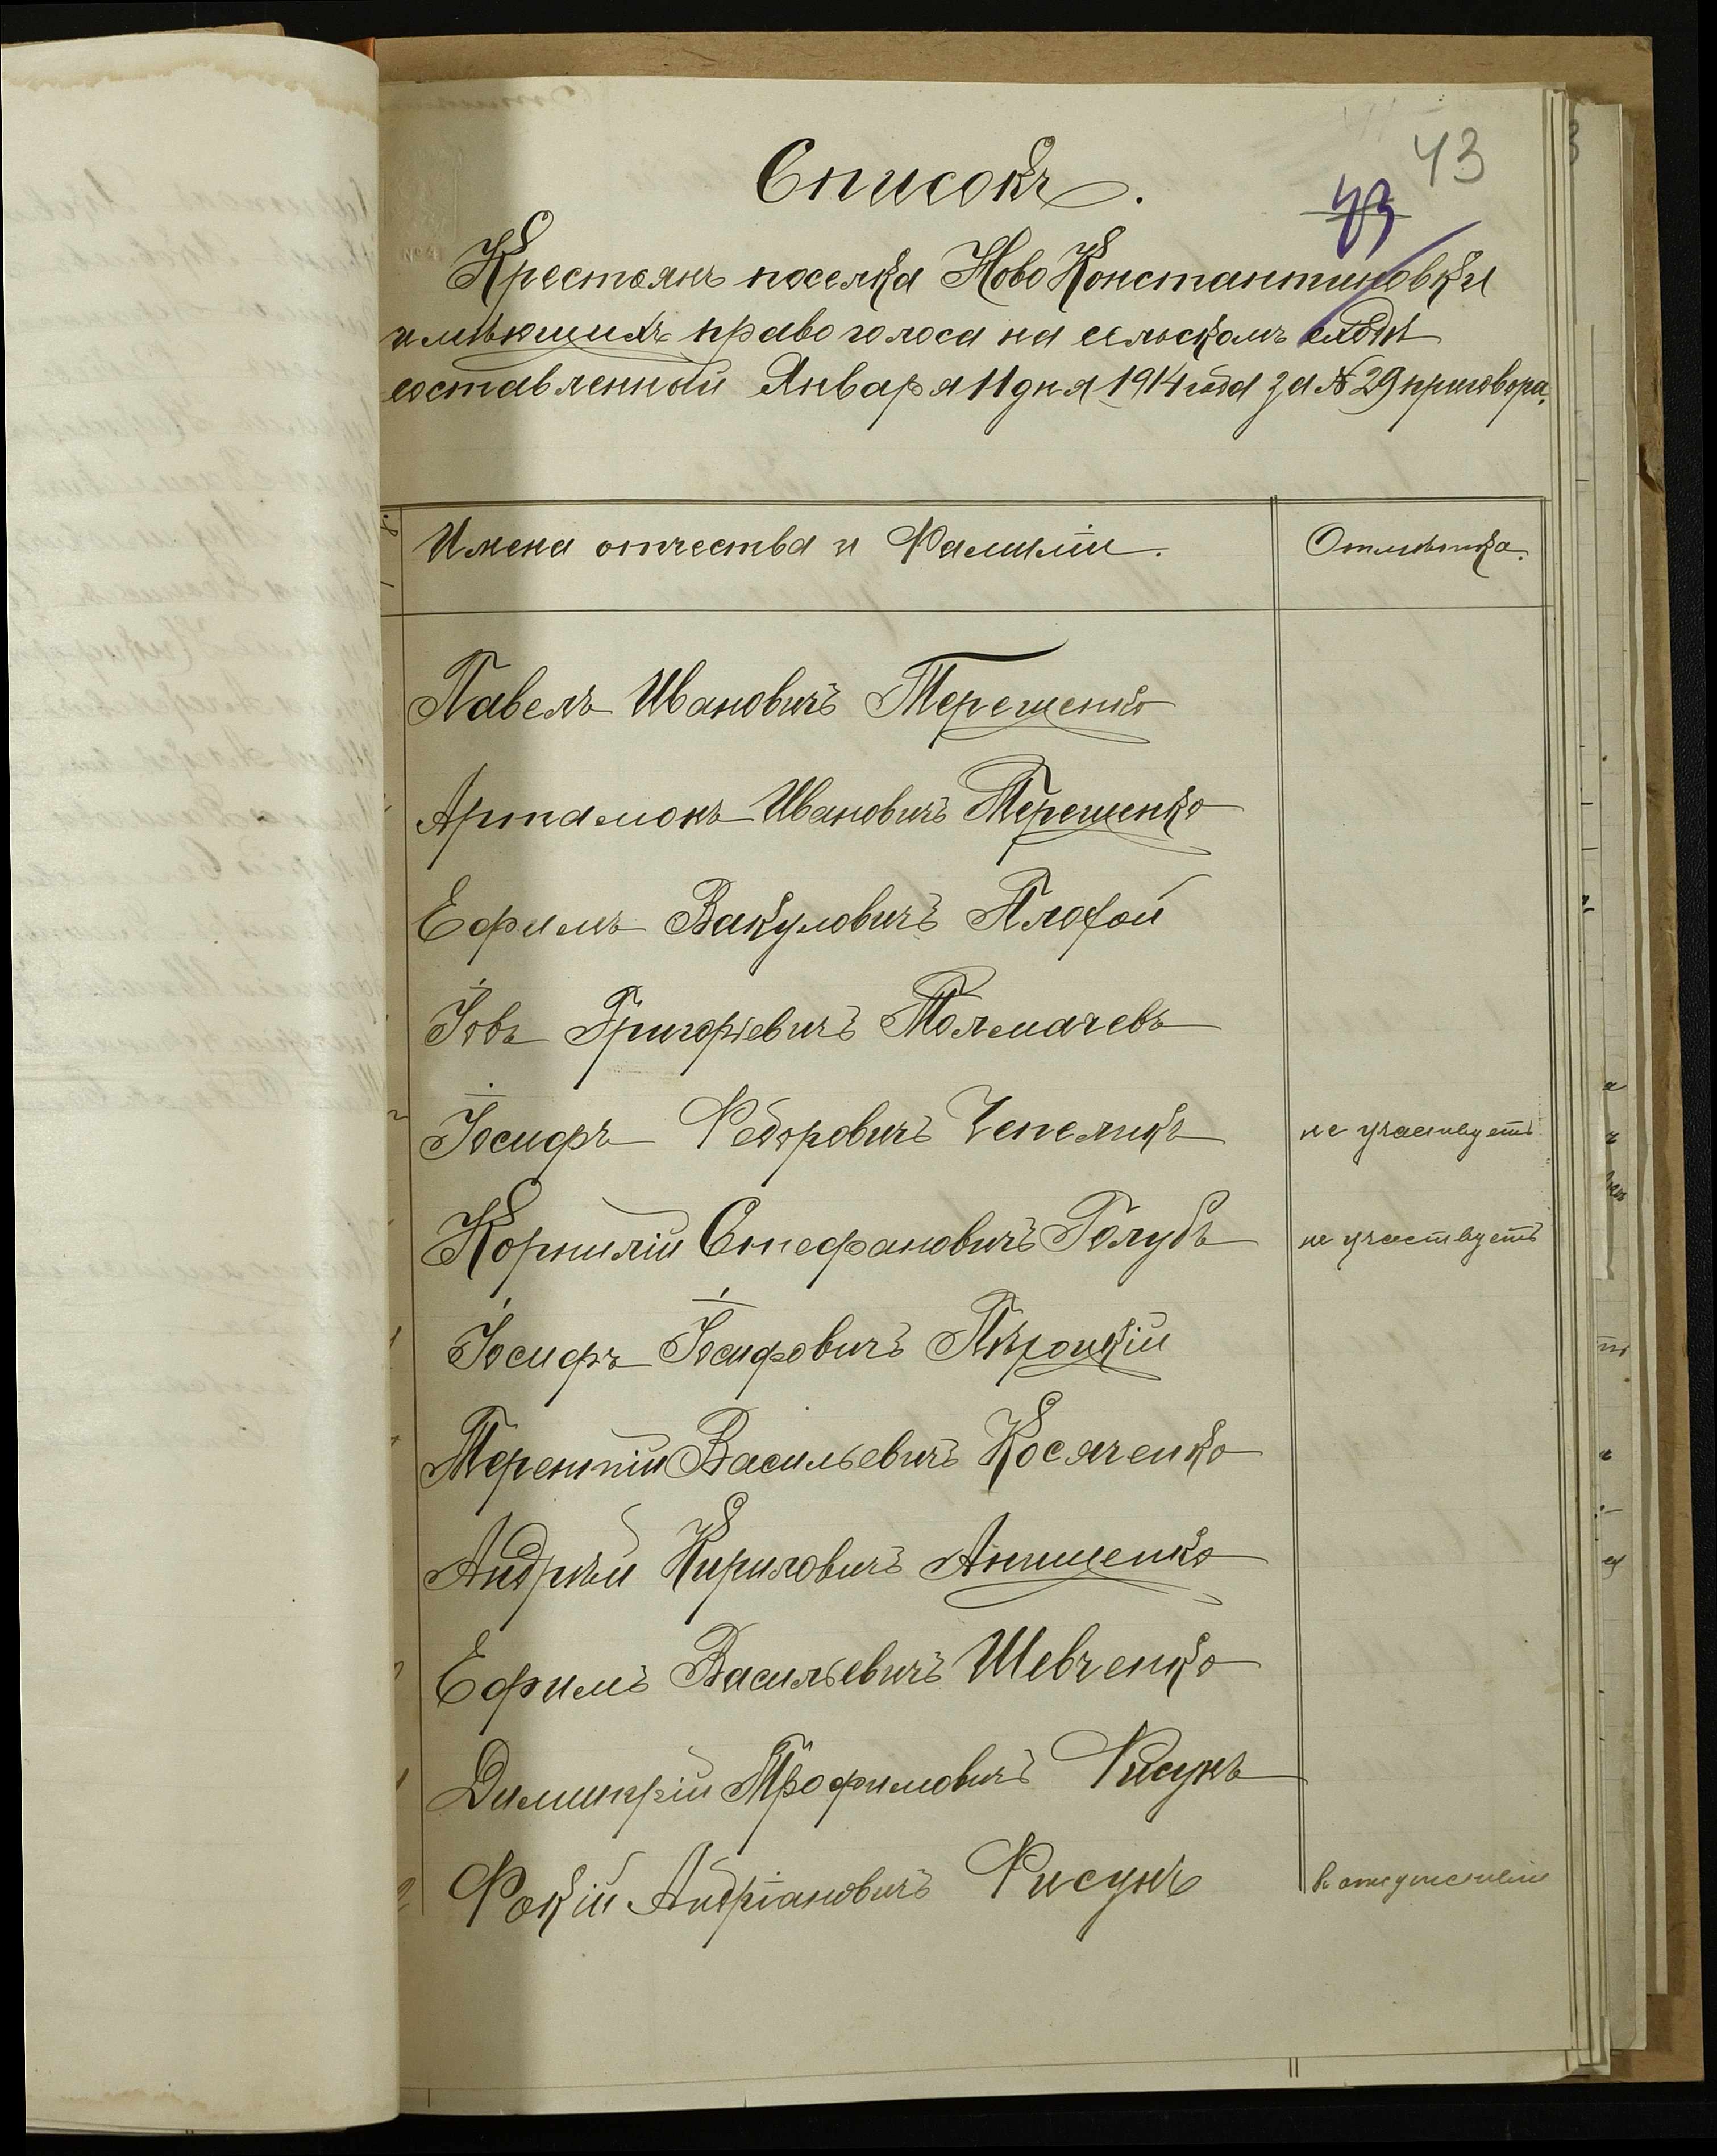 43
43
Списокъ.
Крестьянъ поселка Ново Константиновки
имѣющихъ право голоса на сельскомъ сходѣ
составленный Января 11 дня 1914 года за № 29 приговора.
Имена отчества и Фамиліи. Отмѣтка.
Павелъ Ивановичъ Терещенко
Артамонъ Ивановичъ Терещенко
Ефимъ Вакуловичъ Плохой
Іовъ Григоріевичъ Толмачевъ
Іосифъ Федоровичъ Чепеликъ не участвуетъ
Корнилій Стефановичъ Голубъ не участвуетъ
Іосифъ Іосифовичъ
Терентій Васильевичъ Косяченко
Андрѣй Кириловичъ Анищенко
Ефимъ Васильевичъ Шевченко
Димитрій Трофимовичъ Фисунъ
Фокій Андріановичъ Фисунъ в отсутствіи